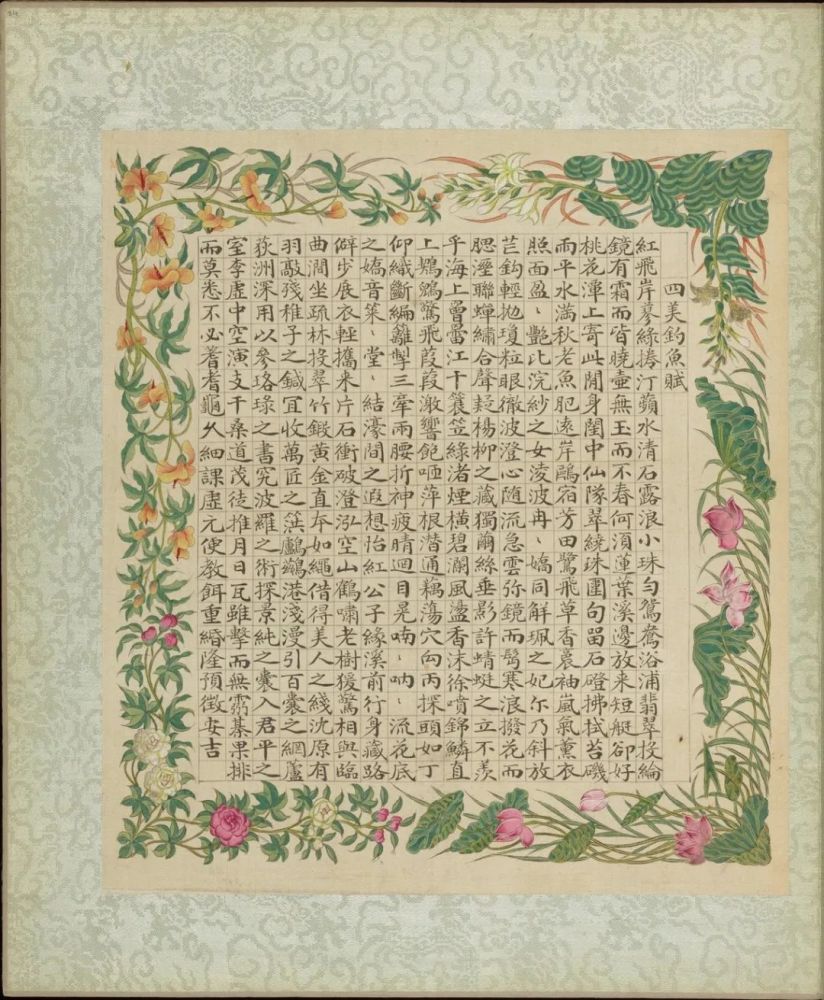 四美釣魚賦
紅飛岸蓼綠捲汀蘋水清石露浪小珠勻鴛鴦浴浦翡翠投綸
鏡有霜而皆曉壺無玉而不春何須蓮葉溪邊放來短艇卻好
桃花潭上寄此閒身閨中仙隊翠繞珠圍句留石磴拂拭苔磯
雨平水滿秋老魚肥遠岸鷗宿芳田鷺飛草香裛袖嵐氣薰衣
照面盈丶豔比浣紗之女淩波冉丶嬌同解珮之妃尓乃斜放
芒鉤輕拋瓊粒眼徹波澄心隨流急雲弥鏡而鬢寒浪撥花而
腮溼聯蟬繡合聲起楊柳之藏獨繭絲垂影許蜻蜓之立不羨
乎海上曾罾江干簑笠綠渚煙橫碧瀾風盪香沫徐噴錦鱗直
上鶂鶂驚飛葭葭激響飽咂萍根潛通藕蕩穴向丙探頭如丁
仰纖斷編籬掣三牽兩腰折神疲睛迴目晃喃丶呐丶流花底
之嬌音築丶堂丶結濠間之遐想怡紅公子緣溪前行身藏路
僻步展衣輕攜来片石衝破澄泓空山鶴嘯老樹猨驚相與臨
曲澗坐疏林投翠竹鍛黃金直夲如繩借得美人之綫沈原有
羽敲殘稚子之鍼冝收萬匠之篊鸕鷀港淺漫引百囊之網蘆
荻洲深用以參珞琭之書究波羅之術探景純之囊入君平之
室李虛中空演支干桑道茂徒推月日瓦雖擊而無霛棊果排
而莫悉不必蓍耆龜久細課虛元便教餌重緡隆預徵安吉